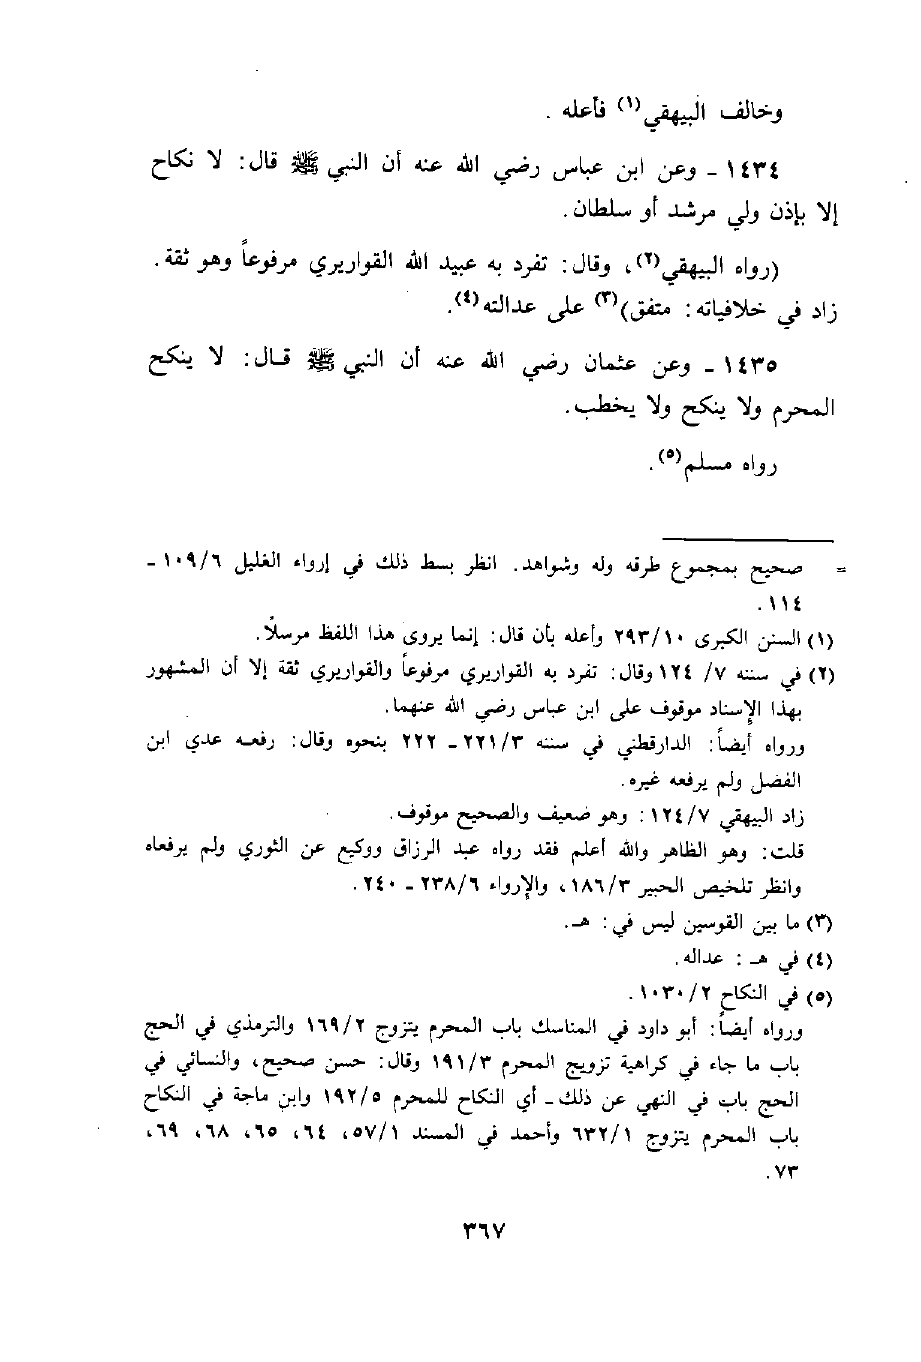 وخالف البيهقي(١) فأعله .
١٤٣٤ ـ وعن ابن عباس رضي الله عنه أن النبي ﷺ قال: لا نكاح
إلا بإذن ولي مرشد أو سلطان.
(رواه البيهقي(٢)، وقال: تفرد به عبيد الله القواريري مرفوعاً وهو ثقة.
زاد في خلافياته: متفق)(٣) على عدالته(٤).
١٤٣٥ ـ وعن عثمان رضي الله عنه أن النبي ﷺ قـال: لا ينكح
المحرم ولا ينكح ولا يخطب.
رواه مسلم(٥).
= صحيح بمجموع طرقه وله وشواهد. انظر بسط ذلك في إرواء الغليل ١٠٩/٦ ـ
١١٤ .
(١) السنن الكبرى ٢٩٣/١٠ وأعله بأن قال: إنما يروى هذا اللفظ مرسلاً.
(٢) في سننه ٧/ ١٢٤ وقال: تفرد به القواريري مرفوعاً والقواريري ثقة إلا أن المشهور
بهذا الإسناد موقوف على ابن عباس رضي الله عنهما.
ورواه أيضاً: الدارقطني في سننه ٢٢١/٣ ـ ٢٢٢ بنحوه وقال: رفعـه عدي ابن
الفضل ولم يرفعه غيره.
زاد البيهقي ١٢٤/٧: وهو ضعيف والصحيح موقوف.
قلت: وهو الظاهر والله أعلم فقد رواه عبد الرزاق ووكيع عن الثوري ولم يرفعاه
وانظر تلخيص الحبير ١٨٦/٣، والإرواء ٢٣٨/٦ ـ ٢٤٠.
(٣) ما بين القوسين ليس في: هـ.
(٤) في هـ : عداله.
(٥) في النكاح ١٠٣٠/٢ .
ورواه أيضاً: أبو داود في المناسك باب المحرم يتزوج ١٦٩/٢ والترمذي في الحج
باب ما جاء في كراهية تزويج المحرم ١٩١/٣ وقال: حسن صحيح، والنسائي في
الحج باب في النهي عن ذلك ـ أي النكاح للمحرم ١٩٢/٥ وابن ماجة في النكاح
باب المحرم يتزوج ٦٣٢/١ وأحمد في المسند ٥٧/١، ٦٤، ٦٥، ٦٨، ٦٩،
٧٣.
٣٦٧